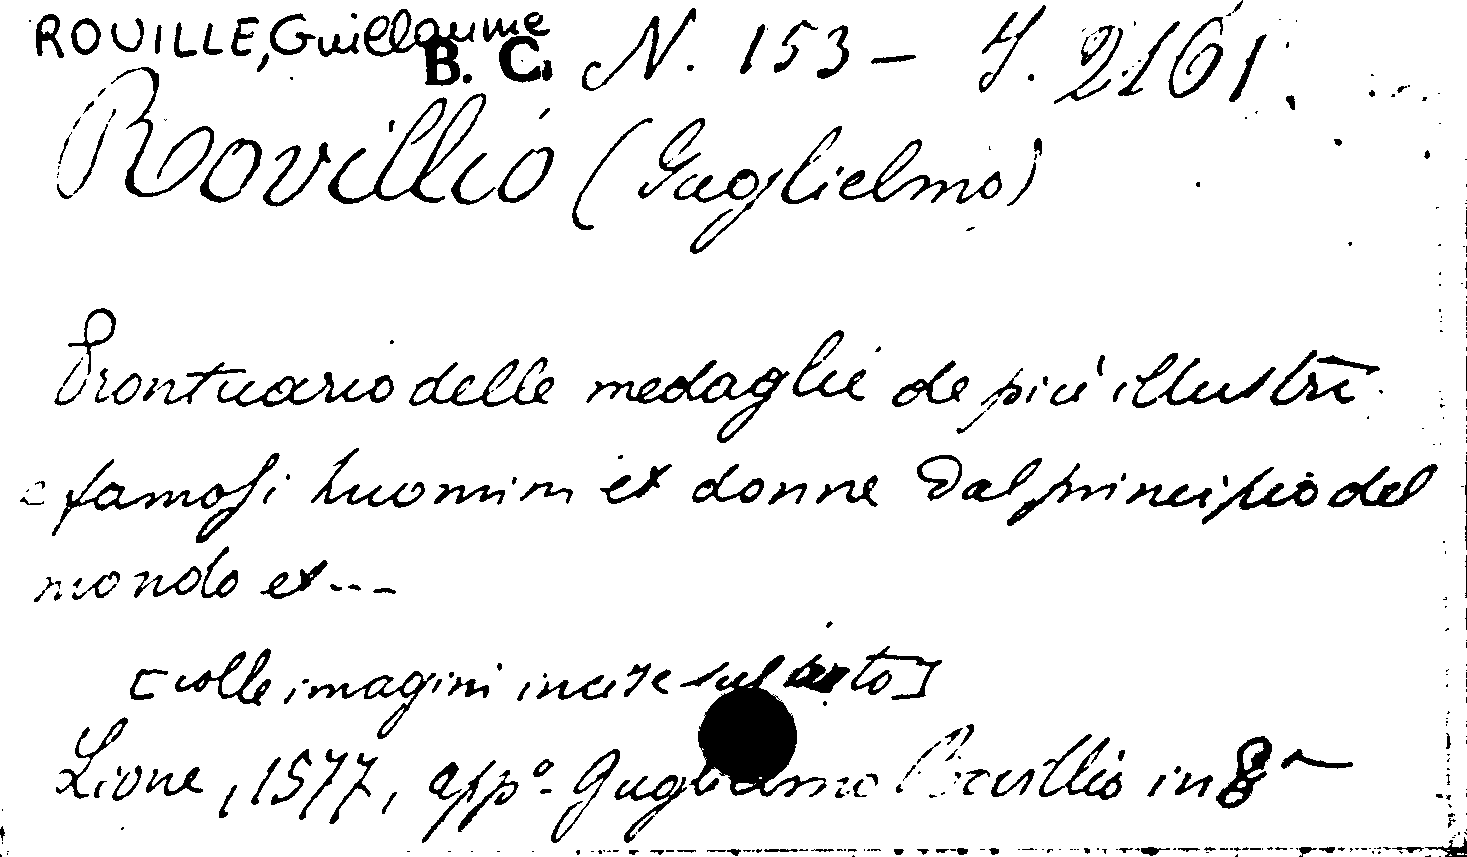 ROUILLE, Guillaume
B. C. N. 153 - Y. 2161.
Rovillio (Guglielmo)
Prontuario delle medaglie de più illustri
e famosi huomini et donne dal principio del
mondo et ---
[colle imagini incise sul testo]
Lione, 1577, appº. Guglielmo Rovillio in 8º